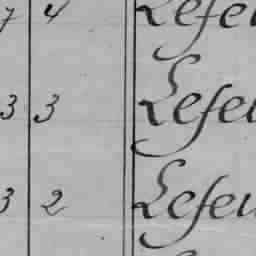 7 4 Lefeu
3 3 Lefeu
3 2 Lefeu